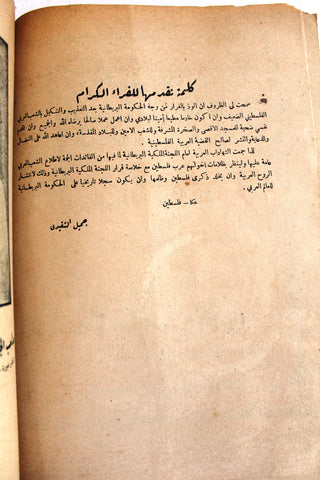 كلمة نقدمها للقراء الكرام
سمحت لي الظروف ان الوذ بالفرار من وجه الحكومة البريطانية بعد التعذيب والتنكيل بالشعب العربي
الفلسطيني الضعيف وان اكون خادما مطيعا أمينا لبلادي وان اعمل عملا صالحا يرضاه الله والجميع وان اقدم
نفسي ضحية للمسجد الاقصى والصخرة المشرفة وللشعب الامين وللبلاد المقدسة، وان اعاهد الله على النضال
والدعاية والنشر لصالح القضية العربية الفلسطينية.
لذا جمعت الشهادات العربية امام اللجنة الملكية البريطانية لما فيها من الفائدات الجمة لاطلاع الشعب العربي
عامة عليها ولينظر بظلامات اخوانهم عرب فلسطين مع خلاصة قرار اللجنة الملكية البريطانية وذلك لانتشار
الروح العربية وان يخلد ذكرى فلسطين وظلمها وان يكون سجلا تاريخيا على الحكومة البريطانية
للعالم العربي.
عكا - فلسطين
جميل الشقيري